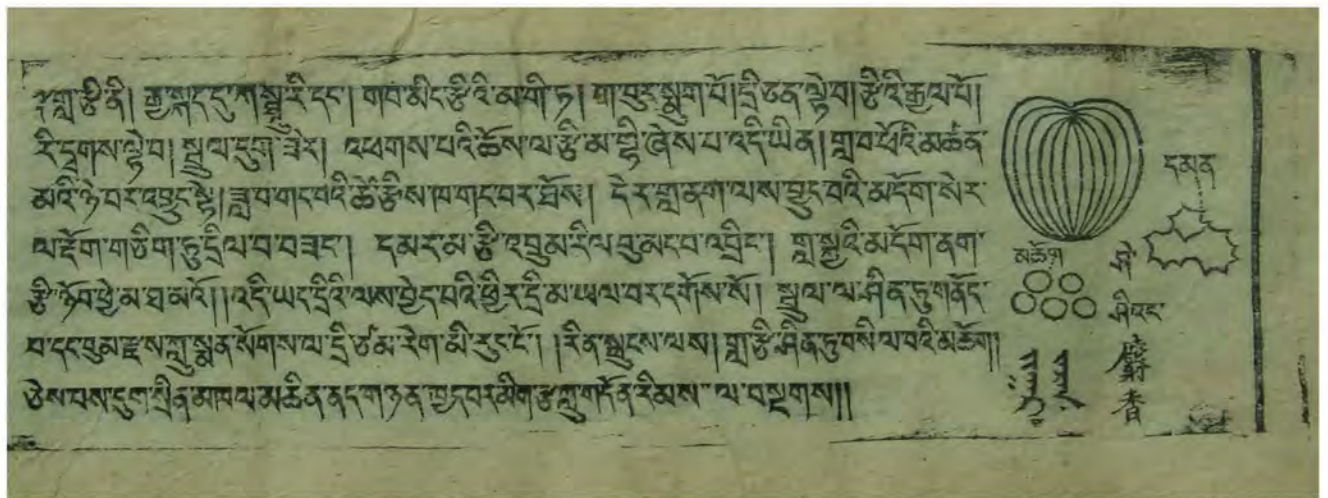 ༈ གླ་རྩི་ནི། རྒྱ་སྐད་དུ་ཀ་སྟཱུ་རི་དང་། གབ་མིང་རྩི་འི་མ་གི་ཏ། ག་བུར་སྨུག་པོ། དྲི་ཙན་ལྟེ་བ། རྩི་འི་རྒྱལ་པོ།
རི་དྭགས་ལྟེ་བ། སྦྲུལ་དུག་ཟེར། འཕགས་པའི་ཆོས་ལ་རྩི་མ་ཞེས་པ་འདི་ཡིན། གླ་བ་ཕོའི་མཚན་
མའི་ཉེ་བར་འབྱུང་སྟེ། ཟླ་བ་གང་བའི་ཚེ་རྩིས་ཁ་གང་བར་ཐོས། དེ་ར་གླ་ནག་ལས་བྱུང་བའི་མདོག་སེར་
ལ་རྡོག་གཅིག་ཏུ་དྲིལ་བ་བཟང་། དམར་མ་རྩི་འབྲུམ་རིལ་བུ་མང་བ་འབྲིང་། གླ་སྐྱའི་མདོག་ནག་
རྩི་ཉོབ་ཕྱེ་མ་ཐ་མའོ། །འདི་ཡང་དྲིའི་ལས་བྱེད་པའི་ཕྱིར་དྲི་མ་ཡལ་བར་དགོས་སོ། སྦྲུལ་ལ་ཤིན་ཏུ་གནོད་
པ་དང་བུམ་རྫས་ཀླུ་སྨན་སོགས་ལ་དྲི་ཙམ་རེག་མི་རུང་ངོ་། །རིན་སྤུངས་ལས། གླ་རྩི་ཤིན་ཏུ་བསིལ་བའི་མཆོག།
ཅེས་པས་དུག་སྲིན་མཁལ་མཆིན་ནད་གཉན་ཁྱད་པར་མིག་རྩ་ཀླུ་གདོན་རིམས་ལ་བསྔགས།།
དམན
མཆོག
ཤེ་
ཤིའང་
麝香